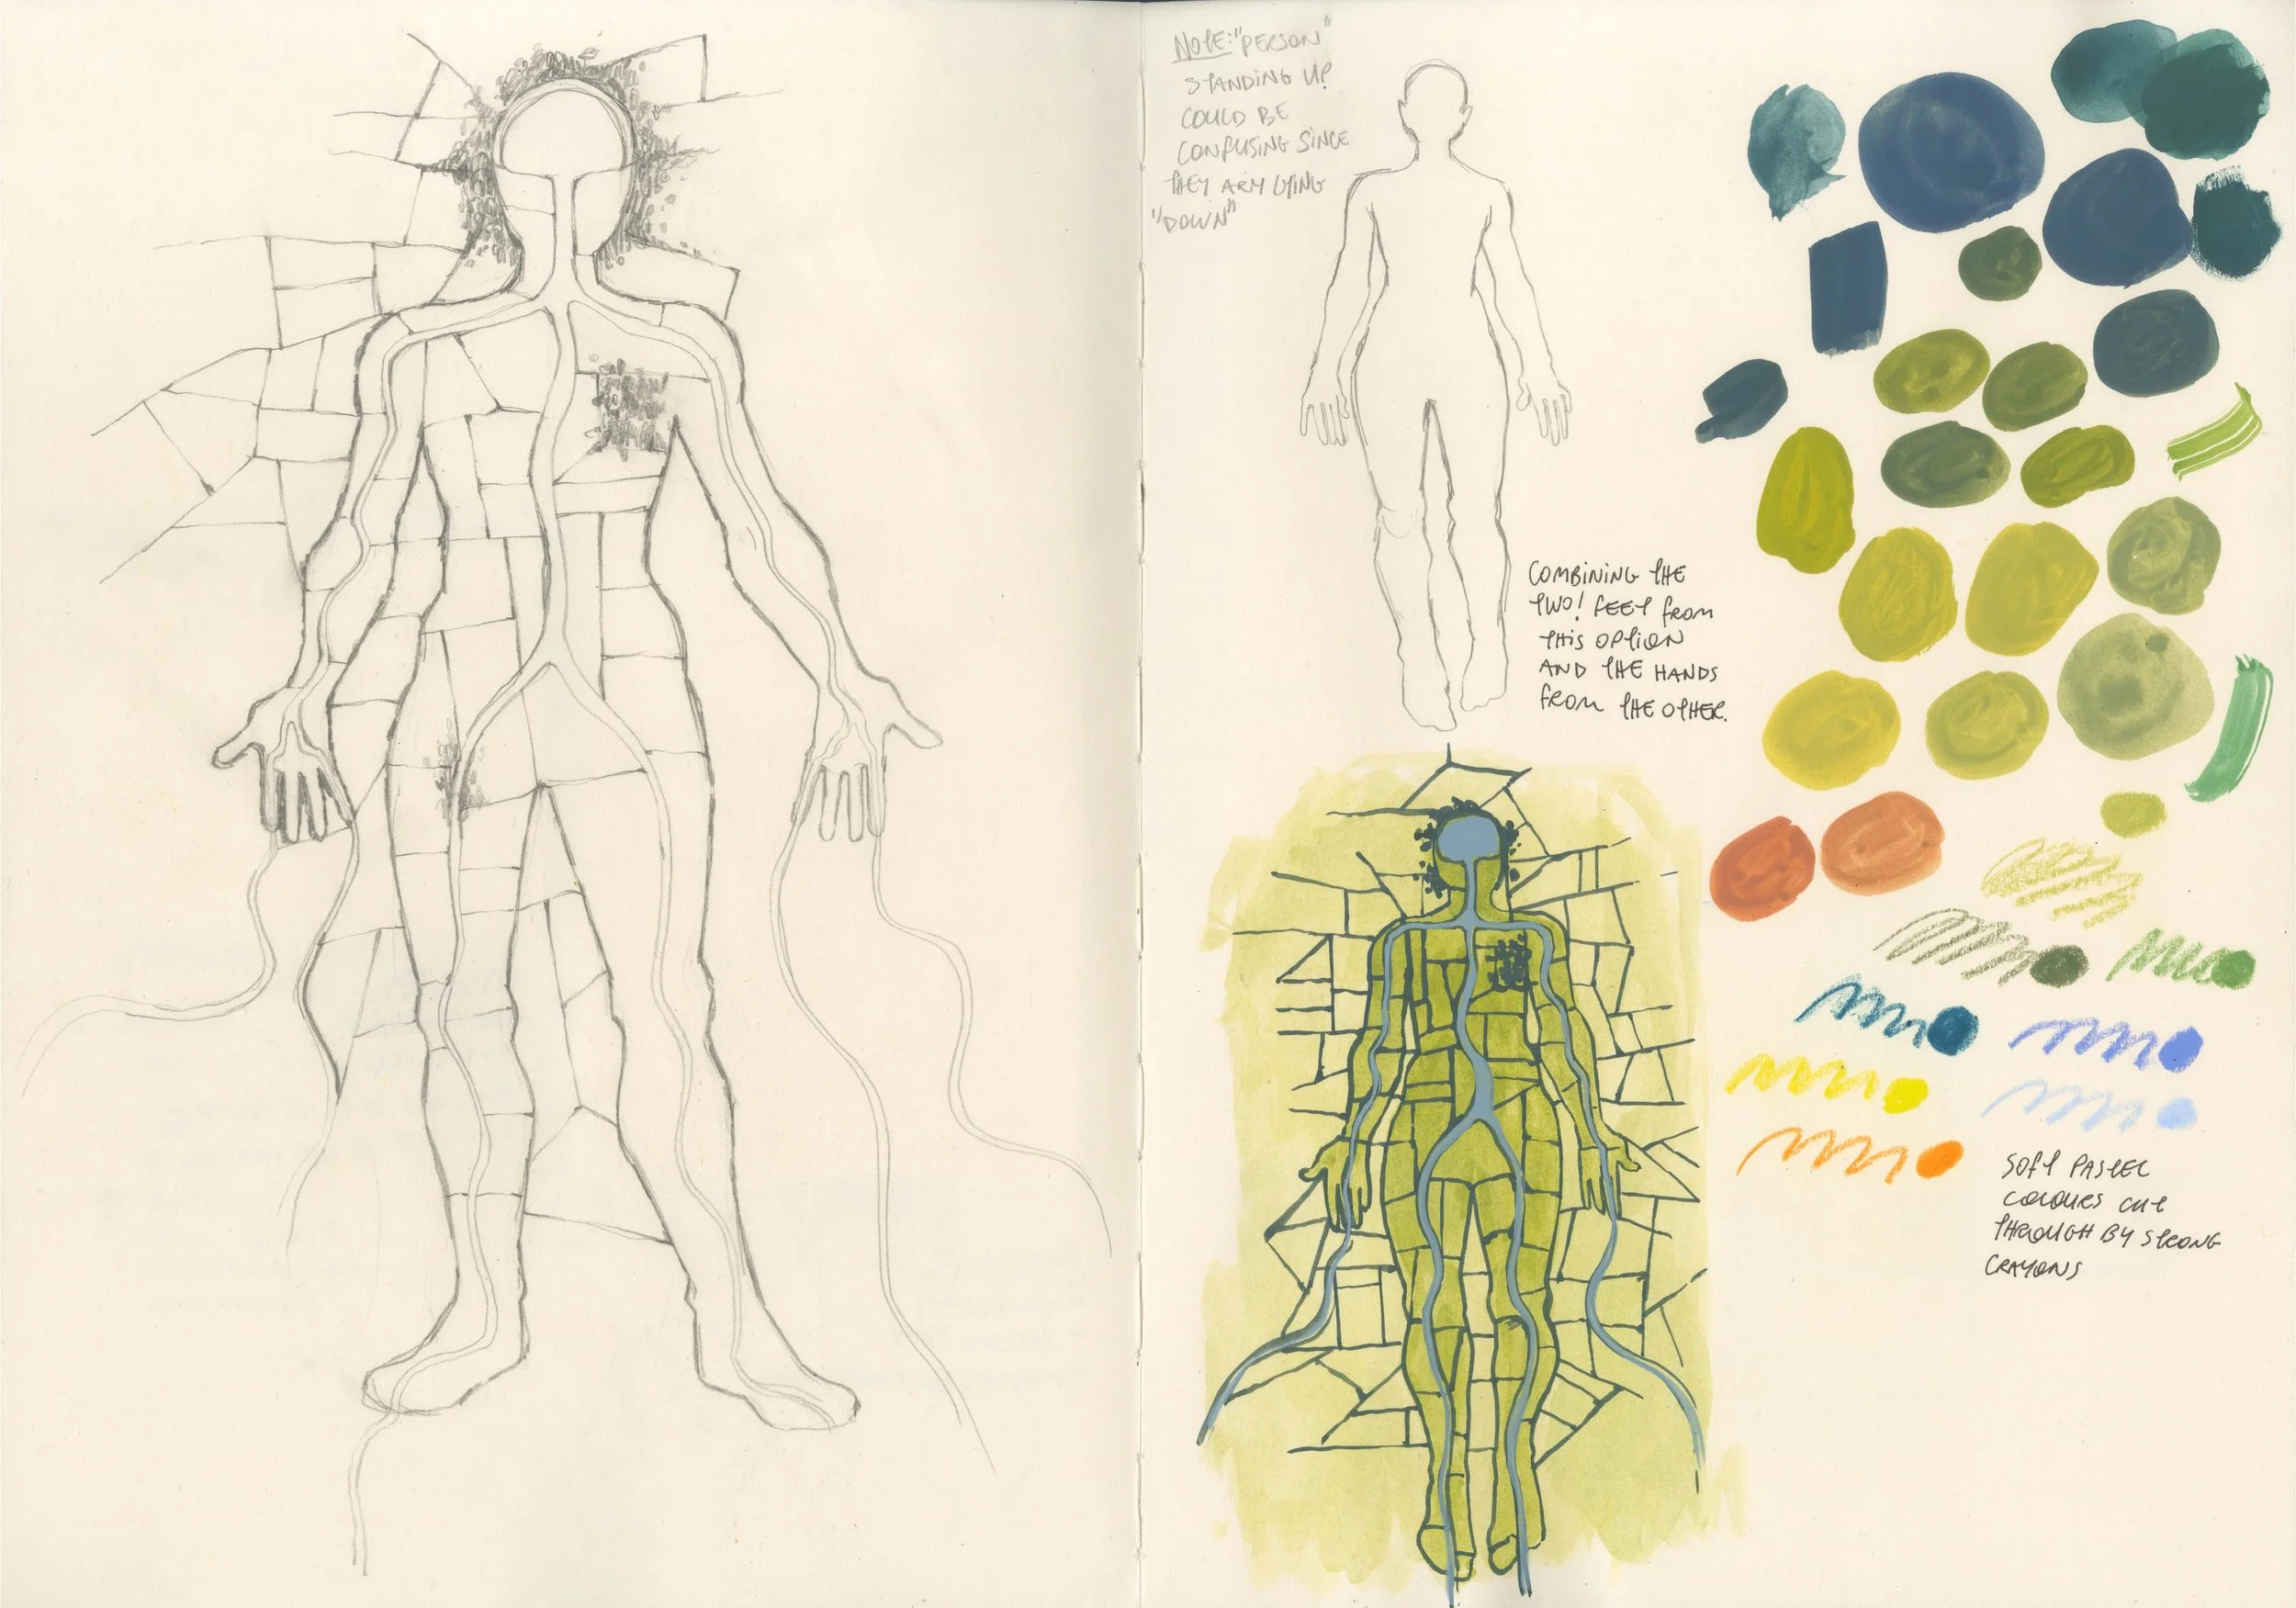 NOTE: "PERSON"
STANDING UP
COULD BE
CONFUSING SINCE
THEY ARM LYING
"DOWN"
COMBINING THE
TWO! FEET FROM
THIS OPTION
AND THE HANDS
FROM THE OTHER.
SOFT PASTEL
COLOURS CUT
THROUGH BY STRONG
CRAYONS